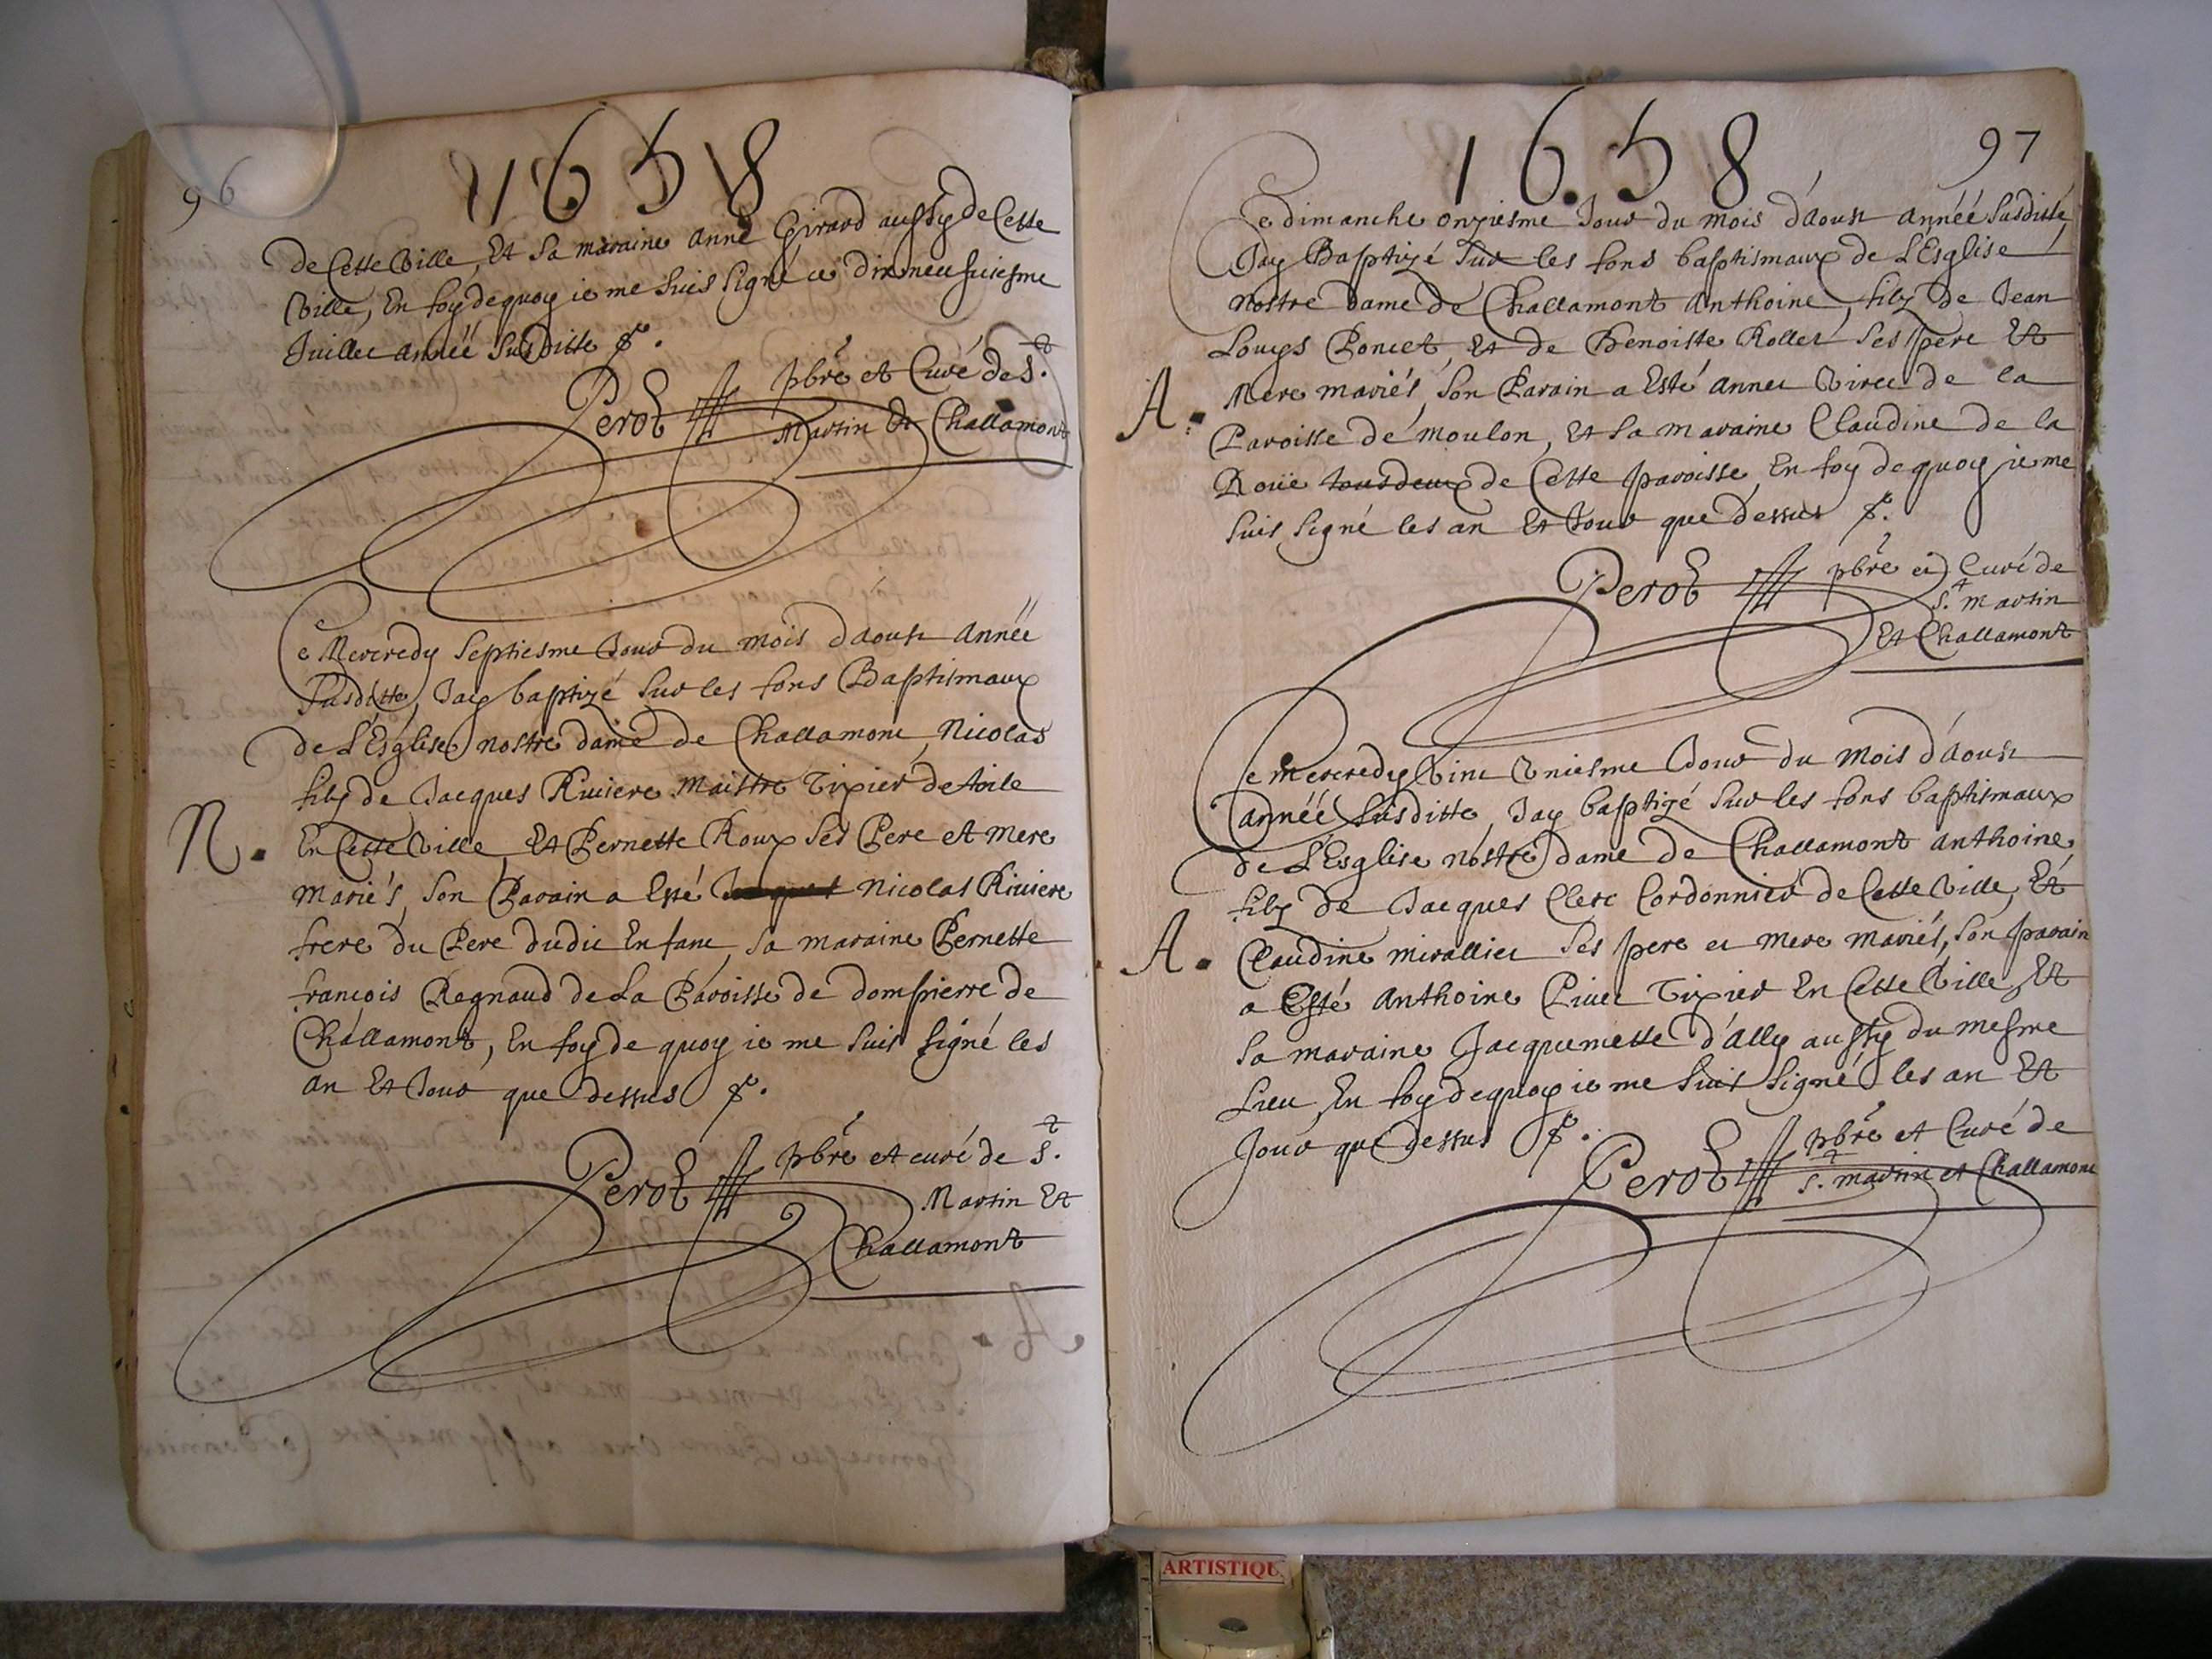 96
1658
de Cette Ville, Et Sa maraine anne Girard aussy de Cette
Ville, En foy dequoy ie me suis signé ce dixneufuiesme
Juillet année Susditte
Perot pbre et Curé de St.
Martin Et Challamont
Ce Mercredy Septiesme Jour du mois daoust année
Susditte, Jay baptizé Sur les fons Baptismaux
de L'Esglise nostre dame de Challamont, Nicolas
filz de Jacques Riuiere Maistre Tixier de toile
N.
En Cette Ville, Et Pernette Roux Ses Pere et Mere
Mariés, Son Parain a Esté Jacques Nicolas Riuiere
frere du Pere dudit Enfant, sa maraine Pernette
francois Regnaud de La Paroisse de dompierre de
Challamont, En foy de quoy ie me suis signé les
an Et Jour que dessus
Perot pbre et curé de St.
Martin Et
Challamont
1658
97
Ce dimanche onziesme Jour du mois d'aoust année Susditte,
Jay Baptizé Sur les fons baptismaux de L'Esglise
nostre dame de Challamont Anthoine, filz de Jean
Louys Poncet, Et de Benoiste Rollet Ses pere Et
A.
Mere mariés, Son Parain a Esté annet Viret de la
Paroisse de moulon, Et Sa maraine Claudine de la
Roüe tousdeux de Cette paroisse, En foy de quoy ie me
suis signé les an Et Jour que dessus
Perot pbre et Curé de
St. Martin
Et Challamont
Ce Mercredy Vint Vniesme Jour du Mois d'aoust
année susditte, Jay baptizé Sur les fons baptismaux
de L'Esglise nostre dame de Challamont anthoine,
filz de Jacques Clerc Cordonnier de Cette Ville, Et
A.
Claudine mirallier Ses pere et mere mariés, Son parain
a Esté Anthoine Piuet Tixier En Cette Ville, Et
Sa maraine Jacquemette d'Ally aussy du mesme
Lieu, En foy dequoy ie me suis signé les an Et
Jour que dessus
Perot pbre et Curé de
St. martin et Challamont
ARTISTIQU